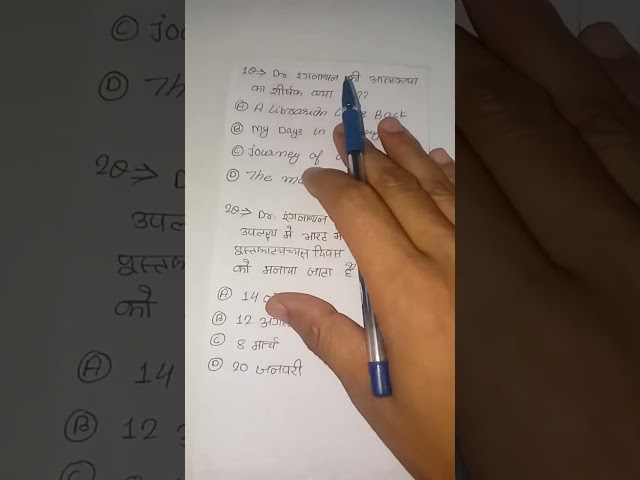 1Q→ Dr. रंगनाथन की आत्मकथा
का शीर्षक क्या ??
Ⓐ A Librarian Back
Ⓑ My Days in
Ⓒ Journey of
Ⓓ The
2Q→ Dr. रंगनाथन
उपलक्ष्य में भारत में
पुस्तकालयाध्यक्ष दिवस
को मनाया जाता है
Ⓐ 14
Ⓑ 12 अगस्त
Ⓒ 8 मार्च
Ⓓ 20 जनवरी